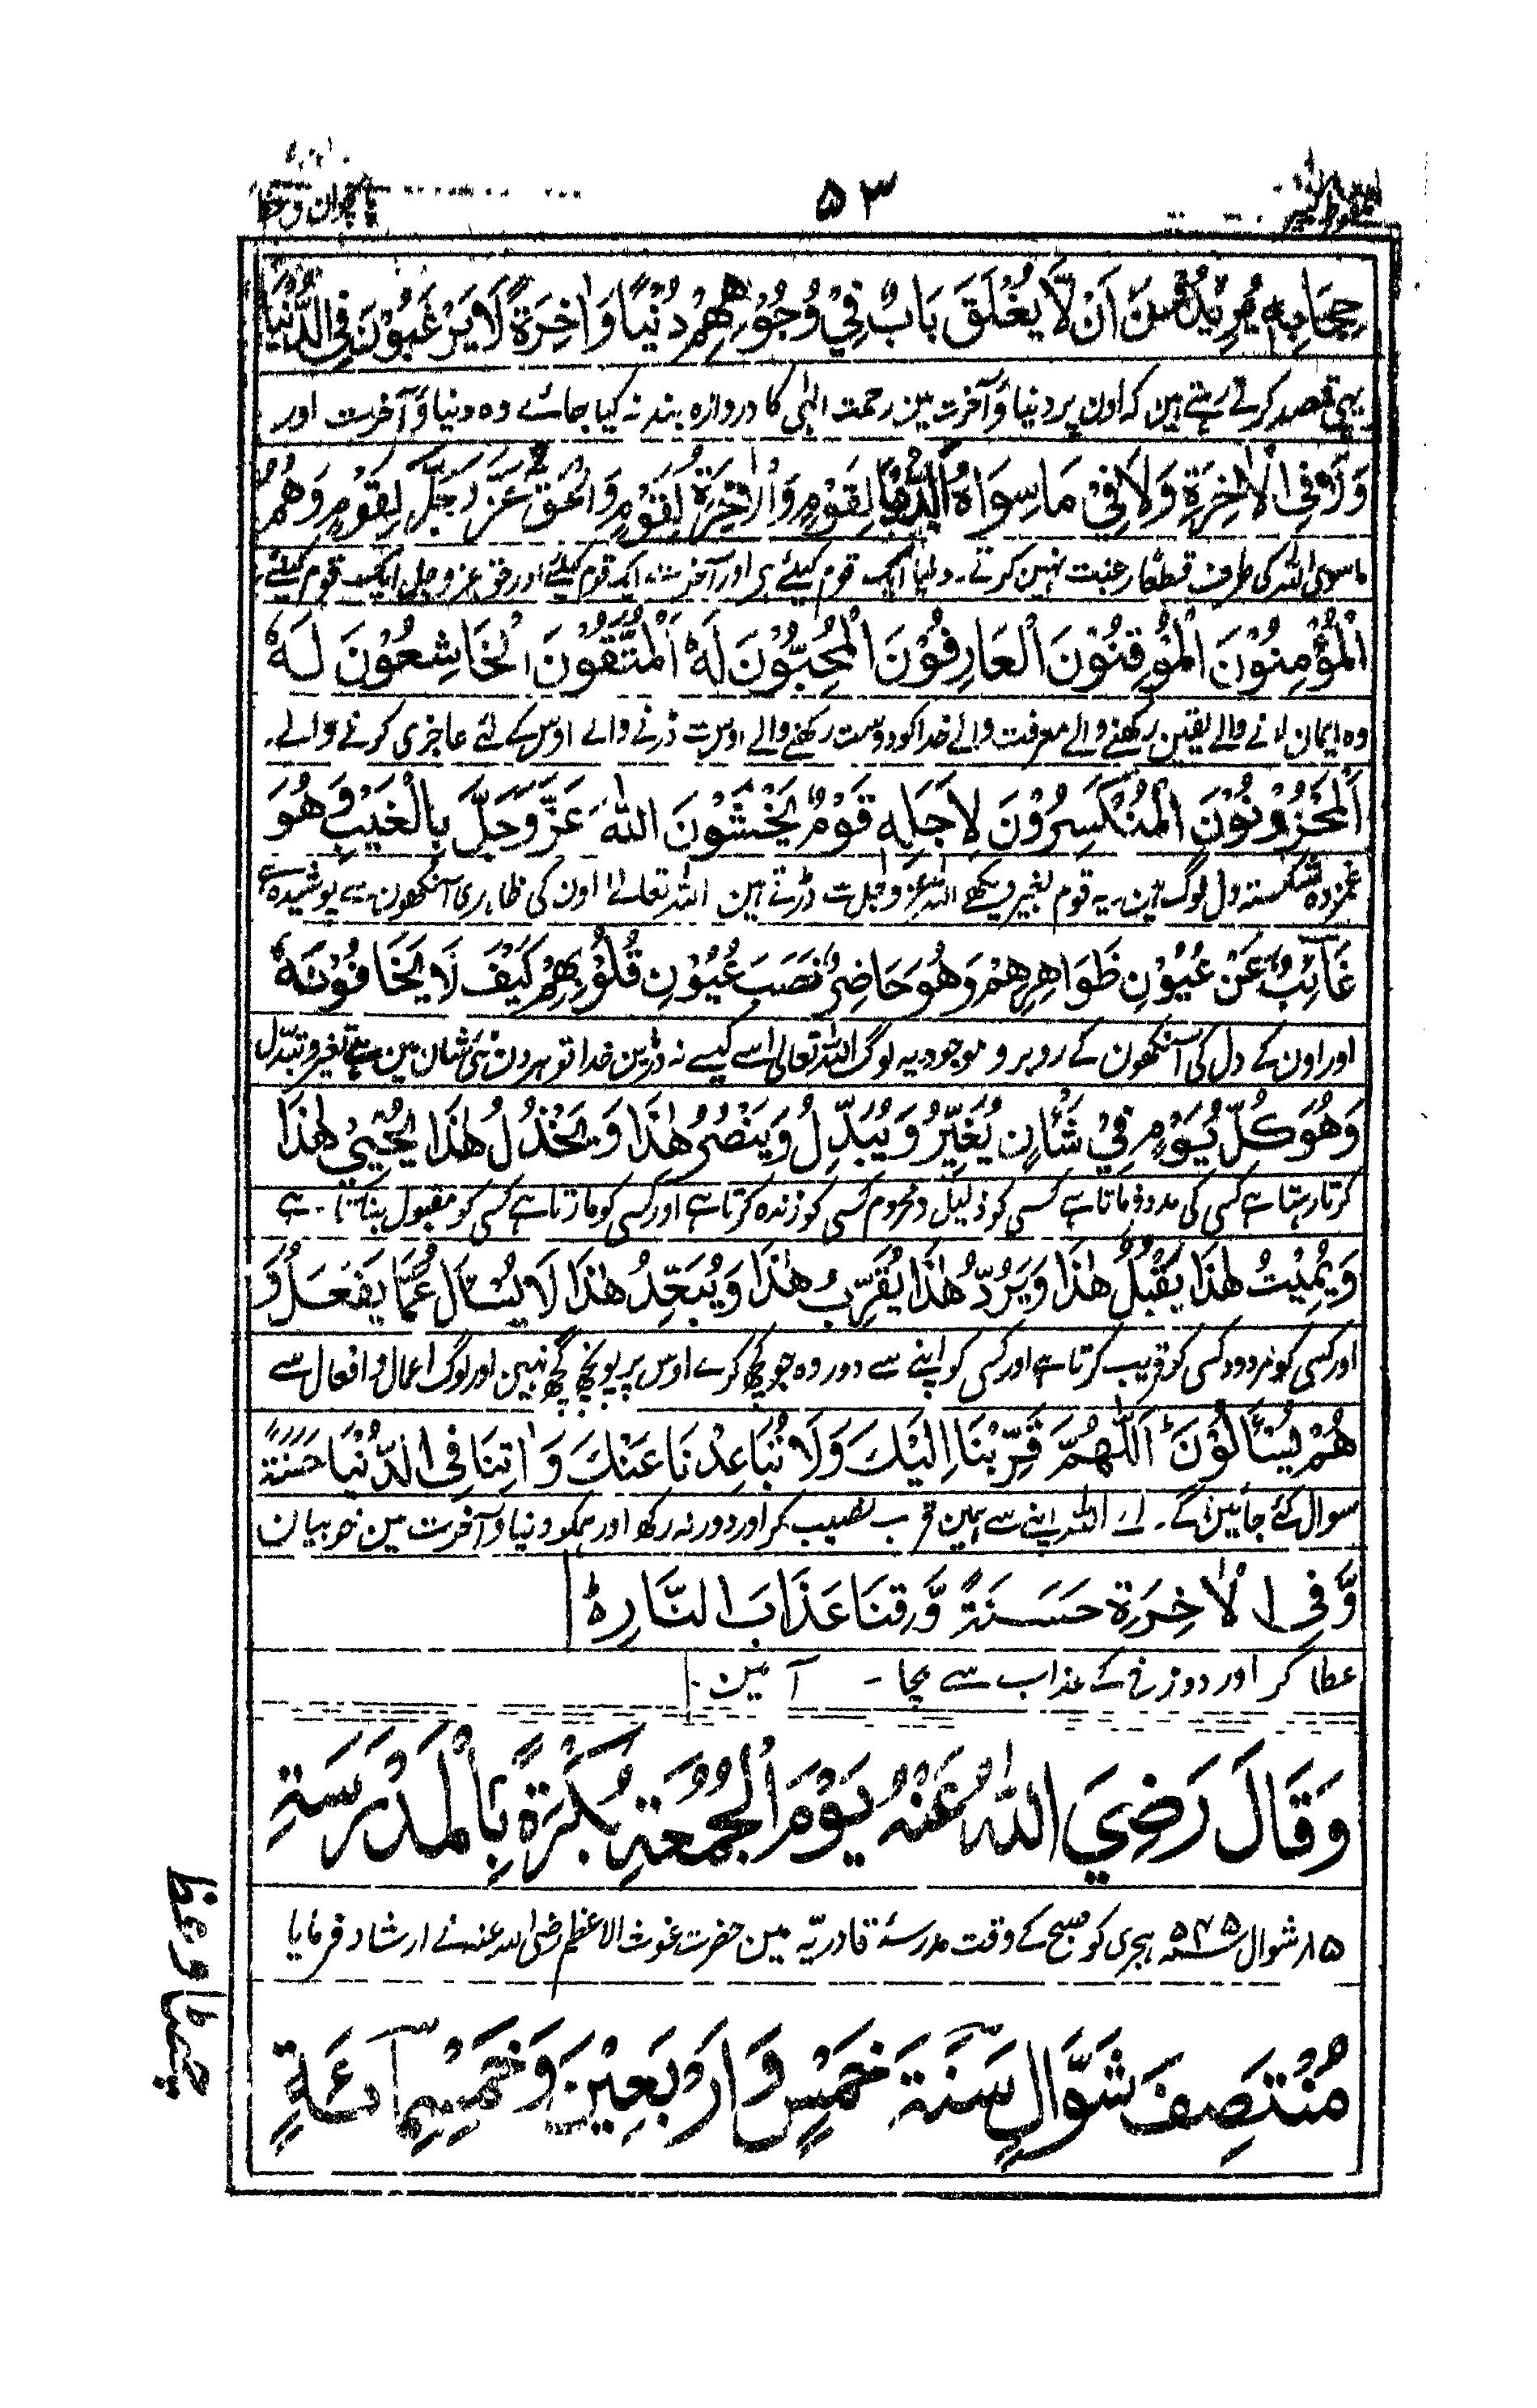 ۵۳
حِجَابِهِ يُرِيْدُوْنَ اَنْ لَّا يُغْلَقَ بَابٌ فِيْ وُجُوْهِهِمْ دُنْيًا وَاٰخِرَةً لَا يَرْغَبُوْنَ فِي الدُّنْيَا
یہی قصد کرتے رہتے ہین کہ اون پر دنیا و آخرت مین رحمت الہٰی کا دروازہ بند نہ کیا جائے وہ دنیا و آخرت اور
وَلَا فِي الْاٰخِرَةِ وَلَا فِيْ مَا سِوَاهُ اَلدُّنْيَا لِقَوْمٍ وَالْاٰخِرَةُ لِقَوْمٍ وَالْحَقُّ عَزَّ وَجَلَّ لِقَوْمٍ وَهُمُ
ماسوی اللہ کی طرف قطعًا رغبت نہین کرتے۔ دنیا ایک قوم کیلئے ہی اور آخرت ایک قوم کیلئے اور حق عزوجل ایک قوم کیلئے
الْمُؤْمِنُوْنَ الْمُوْقِنُوْنَ الْعَارِفُوْنَ الْمُحِبُّوْنَ لَهٗ اَلْمُتَّقُوْنَ الْخَاشِعُوْنَ لَهٗ
وہ ایمان لانے والے یقین رکھنے والے معرفت والے خدا کو دوست رکھنے والے اوس سے ڈرنے والے اوس کے لئے عاجزی کرنے والے۔
اَلْمَحْزُوْنُوْنَ الْمُنْكَسِرُوْنَ لِاَجَلِهٖ قَوْمٌ يَخْشَوْنَ اللهَ عَزَّ وَجَلَّ بِالْغَيْبِ وَهُوَ
غمزدہ شکستہ دل لوگ ہین۔ یہ قوم بغیر دیکھے اللہ عزوجل سے ڈرتے ہین اللہ تعالےٰ اون کی ظاہری آنکھون سے پوشیدہ ہے
غَآئِبٌ عَنْ عُيُوْنِ ظَوَاهِرِهِمْ وَهُوَ حَاضِرٌ نَصَبَ عُيُوْنِ قُلُوْبِهِمْ كَيْفَ لَا يَخَافُوْنَهٗ
اور اون کے دل کی آنکھون کے روبرو موجود یہ لوگ اللہ تعالیٰ سے کیسے نہ ڈرین خدا تو ہر دن نئی شان مین ہے تغیر و تبدّل
وَهُوَ كُلَّ يَوْمٍ فِيْ شَأْنٍ يُغَيِّرُ وَيُبَدِّلُ وَيَنْصُرُ هٰذَا وَيَخْذُلُ هٰذَا يُحْيِيْ هٰذَا
کرتا رہتا ہے کسی کی مدد فرماتا ہے کسی کو ذلیل و محروم کسی کو زندہ کرتا ہے اور کسی کو مارتا ہے کسی کو مقبول بناتا۔ ہے
وَيُمِيْتُ هٰذَا يَقْبَلُ هٰذَا وَيَرُدُّ هٰذَا يُقَرِّبُ هٰذَا وَيُبَعِّدُ هٰذَا لَا يُسْئَالُ عَمَّا يَفْعَلُ وَ
اور کسی کو مردود کسی کو قریب کرتا ہے اور کسی کو اپنے سے دور وہ جو کچھ کرے اوس پر پونچھ گچھ نہین اور لوگ اعمال و افعال سے
هُمْ يُسْئَالُوْنَ اَللّٰهُمَّ قَرِّبْنَا اِلَيْكَ وَلَا تُبَاعِدْنَا عَنْكَ وَاٰتِنَا فِي الدُّنْيَا حَسَنَةً
سوال کئے جائین گے۔ اے اللہ اپنے سے ہمین قرب نصیب کر اور دور نہ رکھ اور ہمکو دنیا و آخرت مین خوبیان
وَّفِي الْاٰخِرَةِ حَسَنَةً وَّقِنَا عَذَابَ النَّارِ
عطا کر اور دوزخ کے عذاب سے بچا۔ آمین۔
وَقَالَ رَضِيَ اللهُ عَنْهُ يَوْمَ الْجُمُعَةِ بُكْرَةً بِالْمَدْرَسَةِ
۱۵ر شوال ۵۴۵ ہجری کو صبح کے وقت مدرسۂ قادریّہ مین حضرت غوث الاعظم رضی اللہ عنہ نے ارشاد فرمایا
مُنْتَصِفَ شَوَّالٍ سَنَةَ خَمْسٍ وَاَرْبَعِيْنَ وَخَمْسِمِائَةٍ
چھٹا وعظ